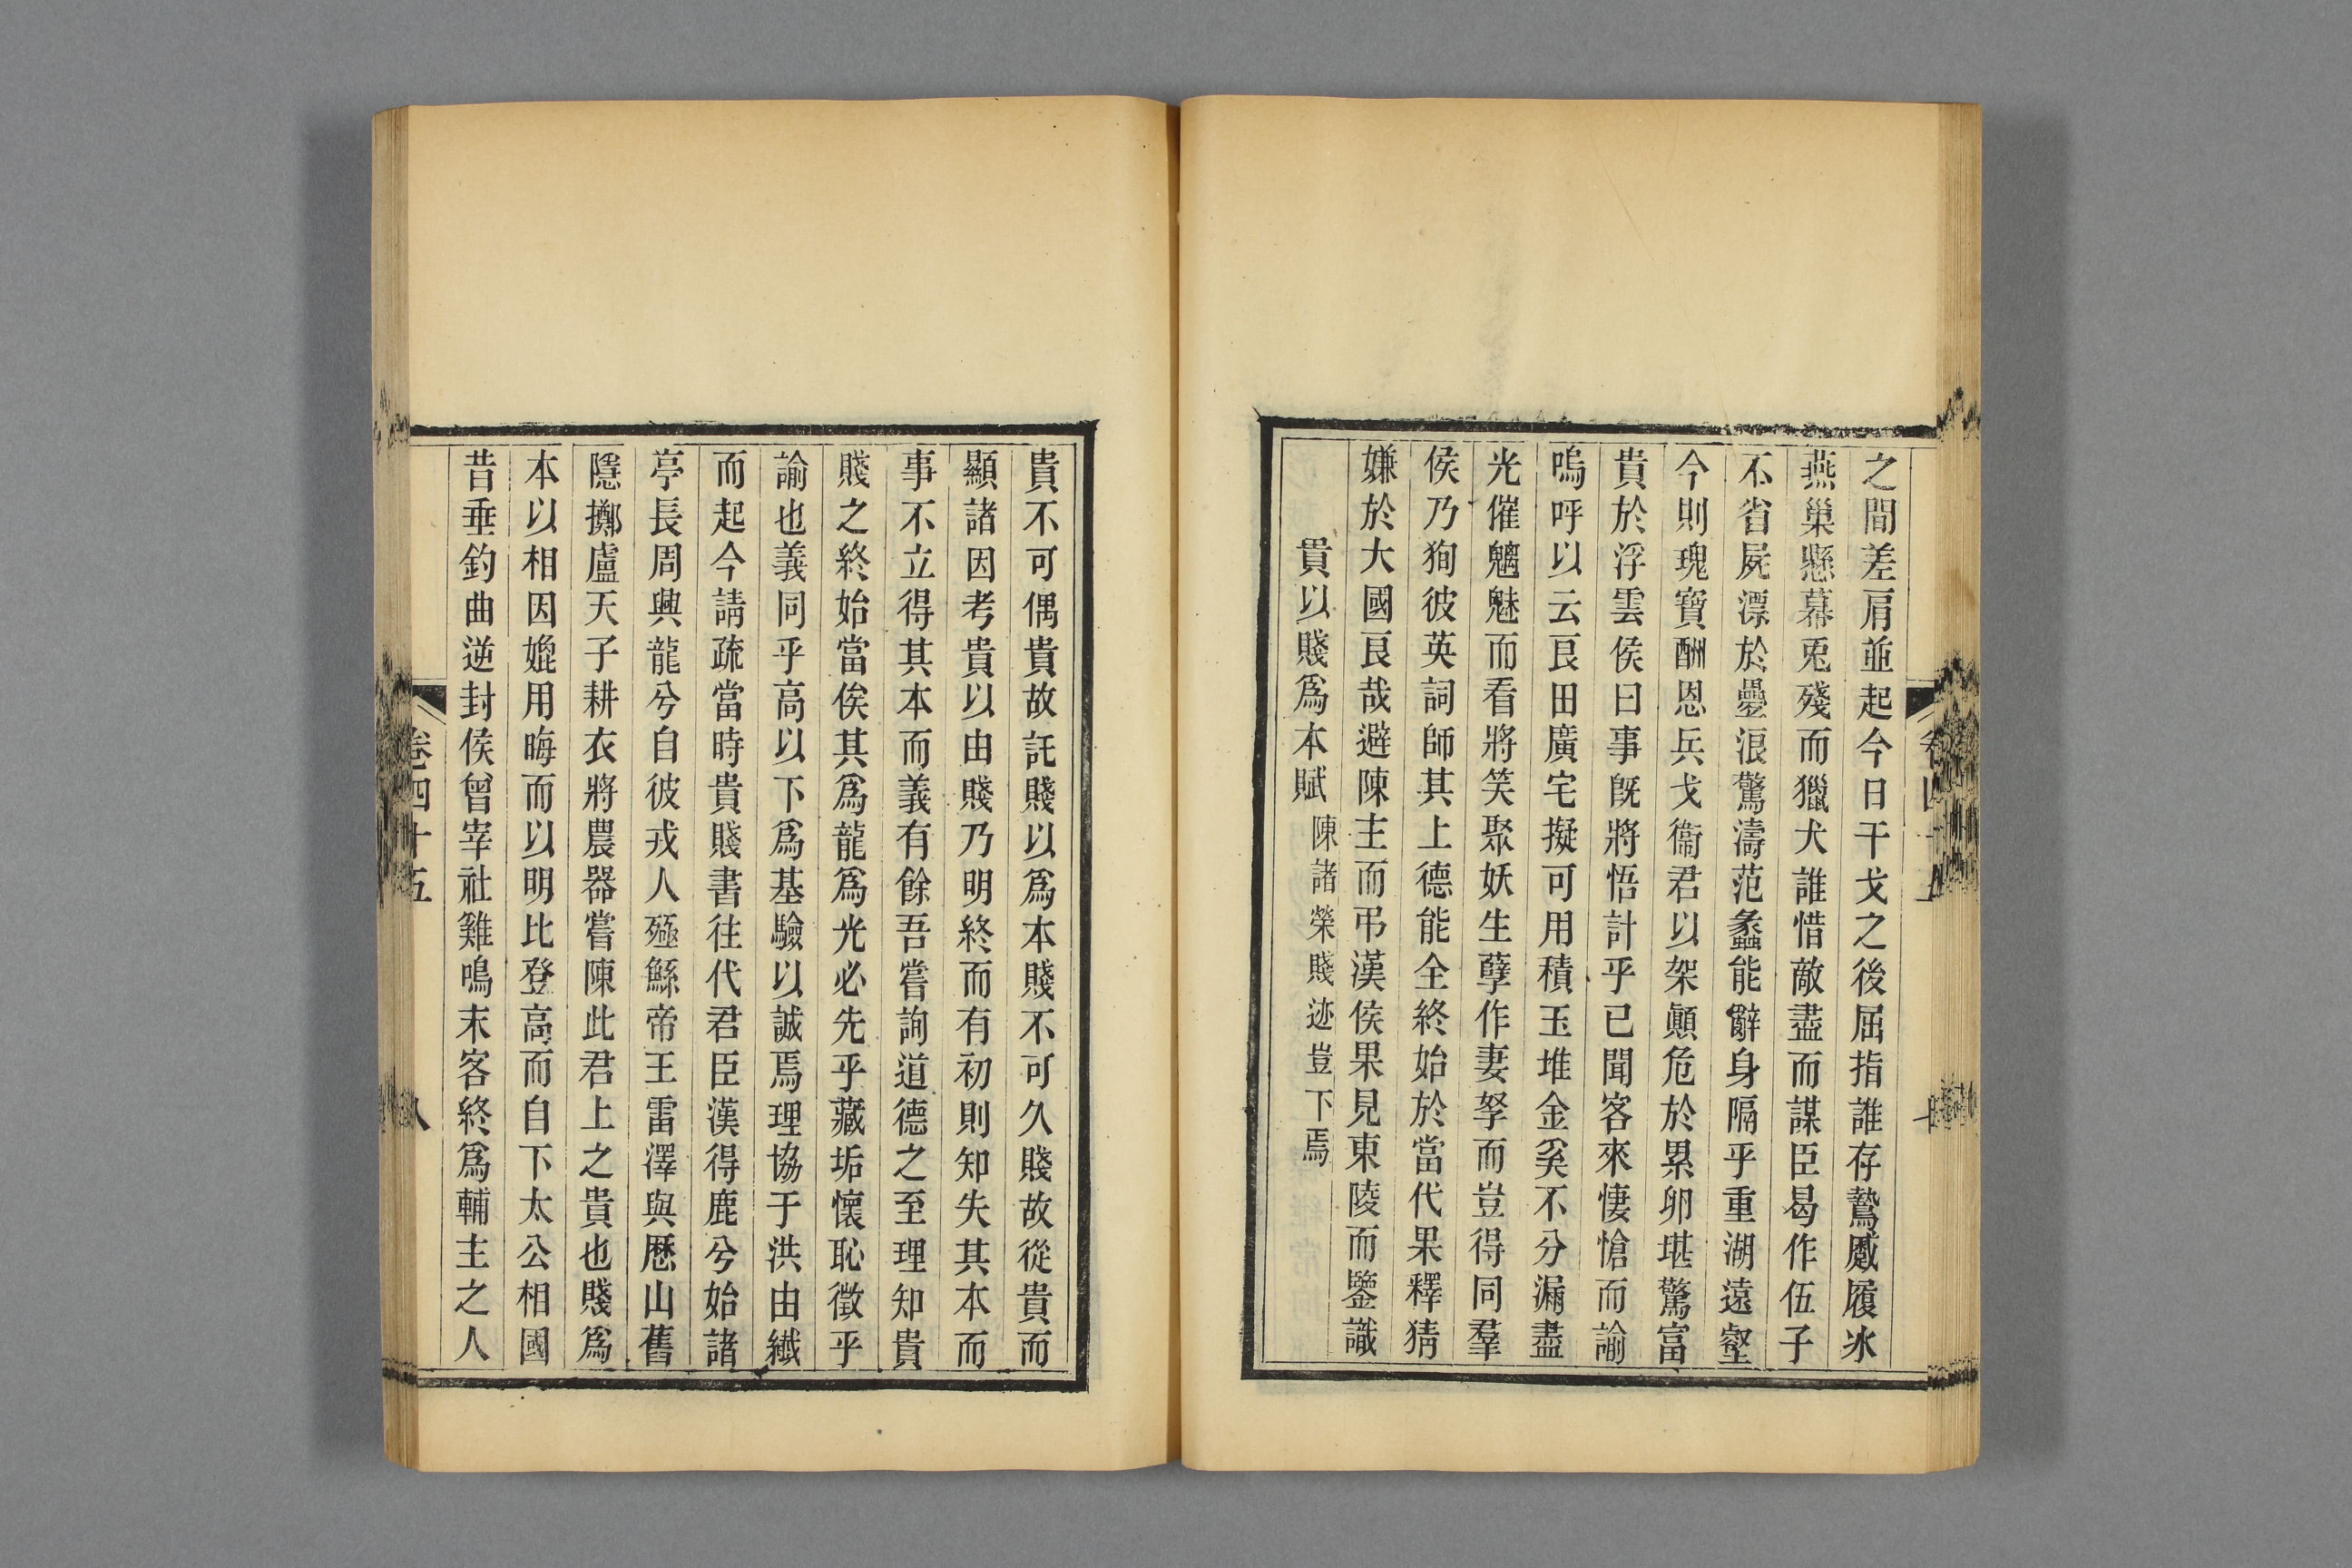 之間差肩並起今日干戈之後屈指誰存鷙蹙履冰
燕巢懸幕兎殘而獵犬誰惜敵盡而謀臣曷作伍子
不省屍漂於曡浪驚濤范蠡能辭身隔乎重湖遠壑
今則瑰寶酬恩兵戈衞君以架顚危於累卵堪驚富
貴於浮雲侯曰事旣將悟計乎已聞客來悽愴而諭
嗚呼以云良田廣宅擬可用積玉堆金奚不分漏盡
光催魑魅而看將笑聚妖生孽作妻孥而豈得同羣
侯乃狥彼英詞師其上德能全終始於當代果釋猜
嫌於大國良哉避陳主而弔漢侯果見東陵而鑒識
貴以賤爲本賦 陳諸榮賤迹豈下焉
卷四十五
貴不可偶貴故託賤以爲本賤不可久賤故從貴而
顯諸因考貴以由賤乃明終而有初則知失其本而
事不立得其本而義有餘吾嘗詢道德之至理知貴
賤之終始當俟其爲龍爲光必先乎藏垢懷恥徵乎
諭也義同乎高以下爲基驗以誠焉理協于洪由纖
而起今請疏當時貴賤書往代君臣漢得鹿兮始諸
亭長周興龍兮自彼戎人殛鯀帝王雷澤與歷山舊
隱擲盧天子耕衣將農器嘗陳此君上之貴也賤爲
本以相因媲用晦而以明比登高而自下太公相國
昔垂釣曲逆封侯曾宰社雞鳴末客終爲輔主之人
卷四十五
八